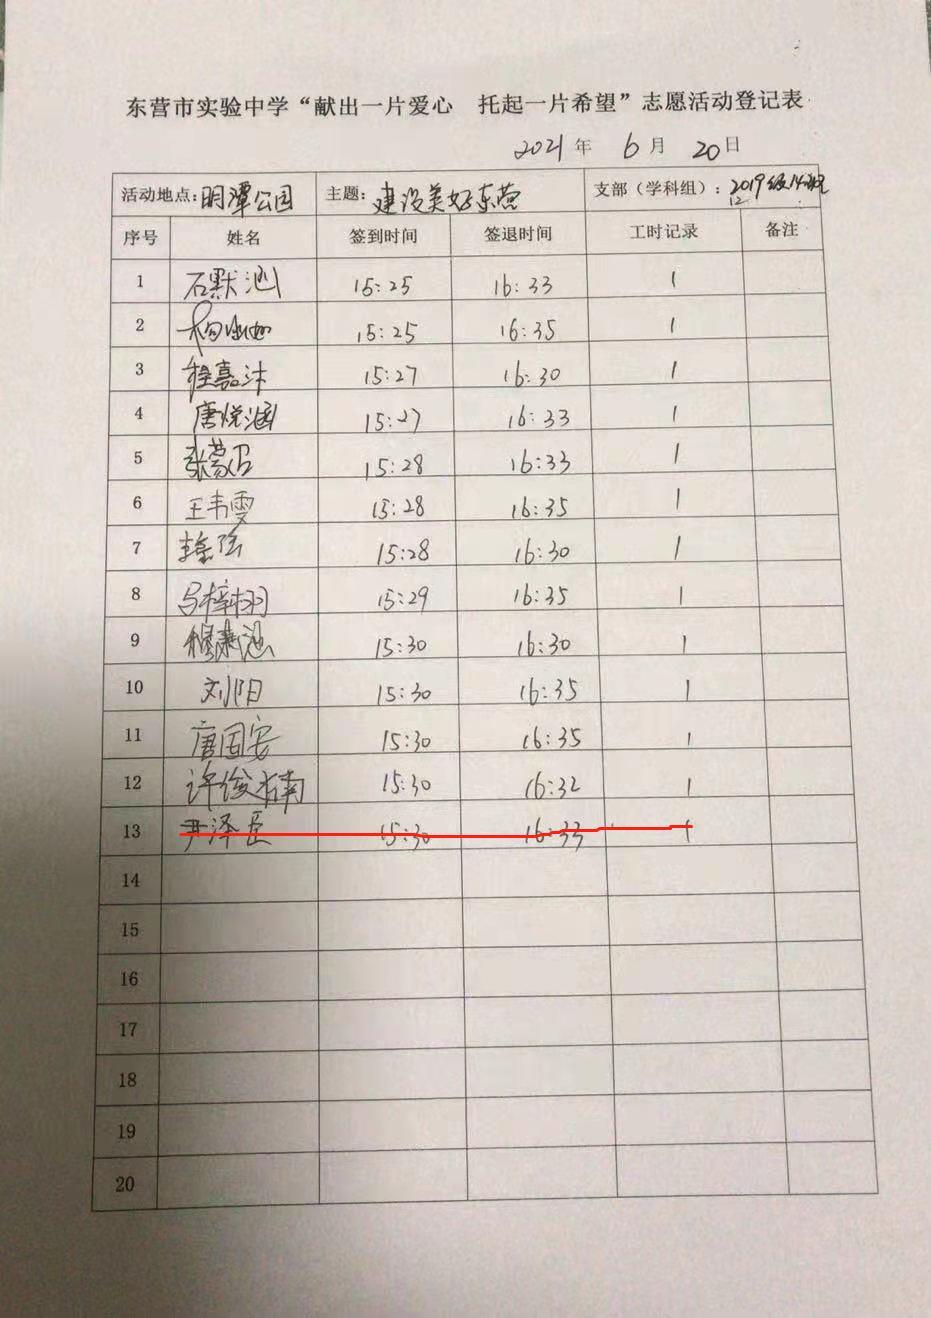 东营市实验中学“献出一片爱心 托起一片希望”志愿活动登记表
2021 年 6 月 20 日
活动地点: 明潭公园 主题: 建设美好东营 支部（学科组）: 2019级14班
12
序号 姓名 签到时间 签退时间 工时记录 备注
1 石默涵 15:25 16:33 1
2 15:25 16:35 1
3 程嘉沐 15:27 16:30 1
4 唐悦涵 15:27 16:33 1
5 张蒙召 15:28 16:33 1
6 王韦雯 15:28 16:35 1
7 15:28 16:30 1
8 马梓栩 15:29 16:35 1
9 15:30 16:30 1
10 刘阳 15:30 16:35 1
11 唐国安 15:30 16:35 1
12 许俊楠 15:30 16:32 1
13 尹泽臣 15:30 16:33 1
14
15
16
17
18
19
20